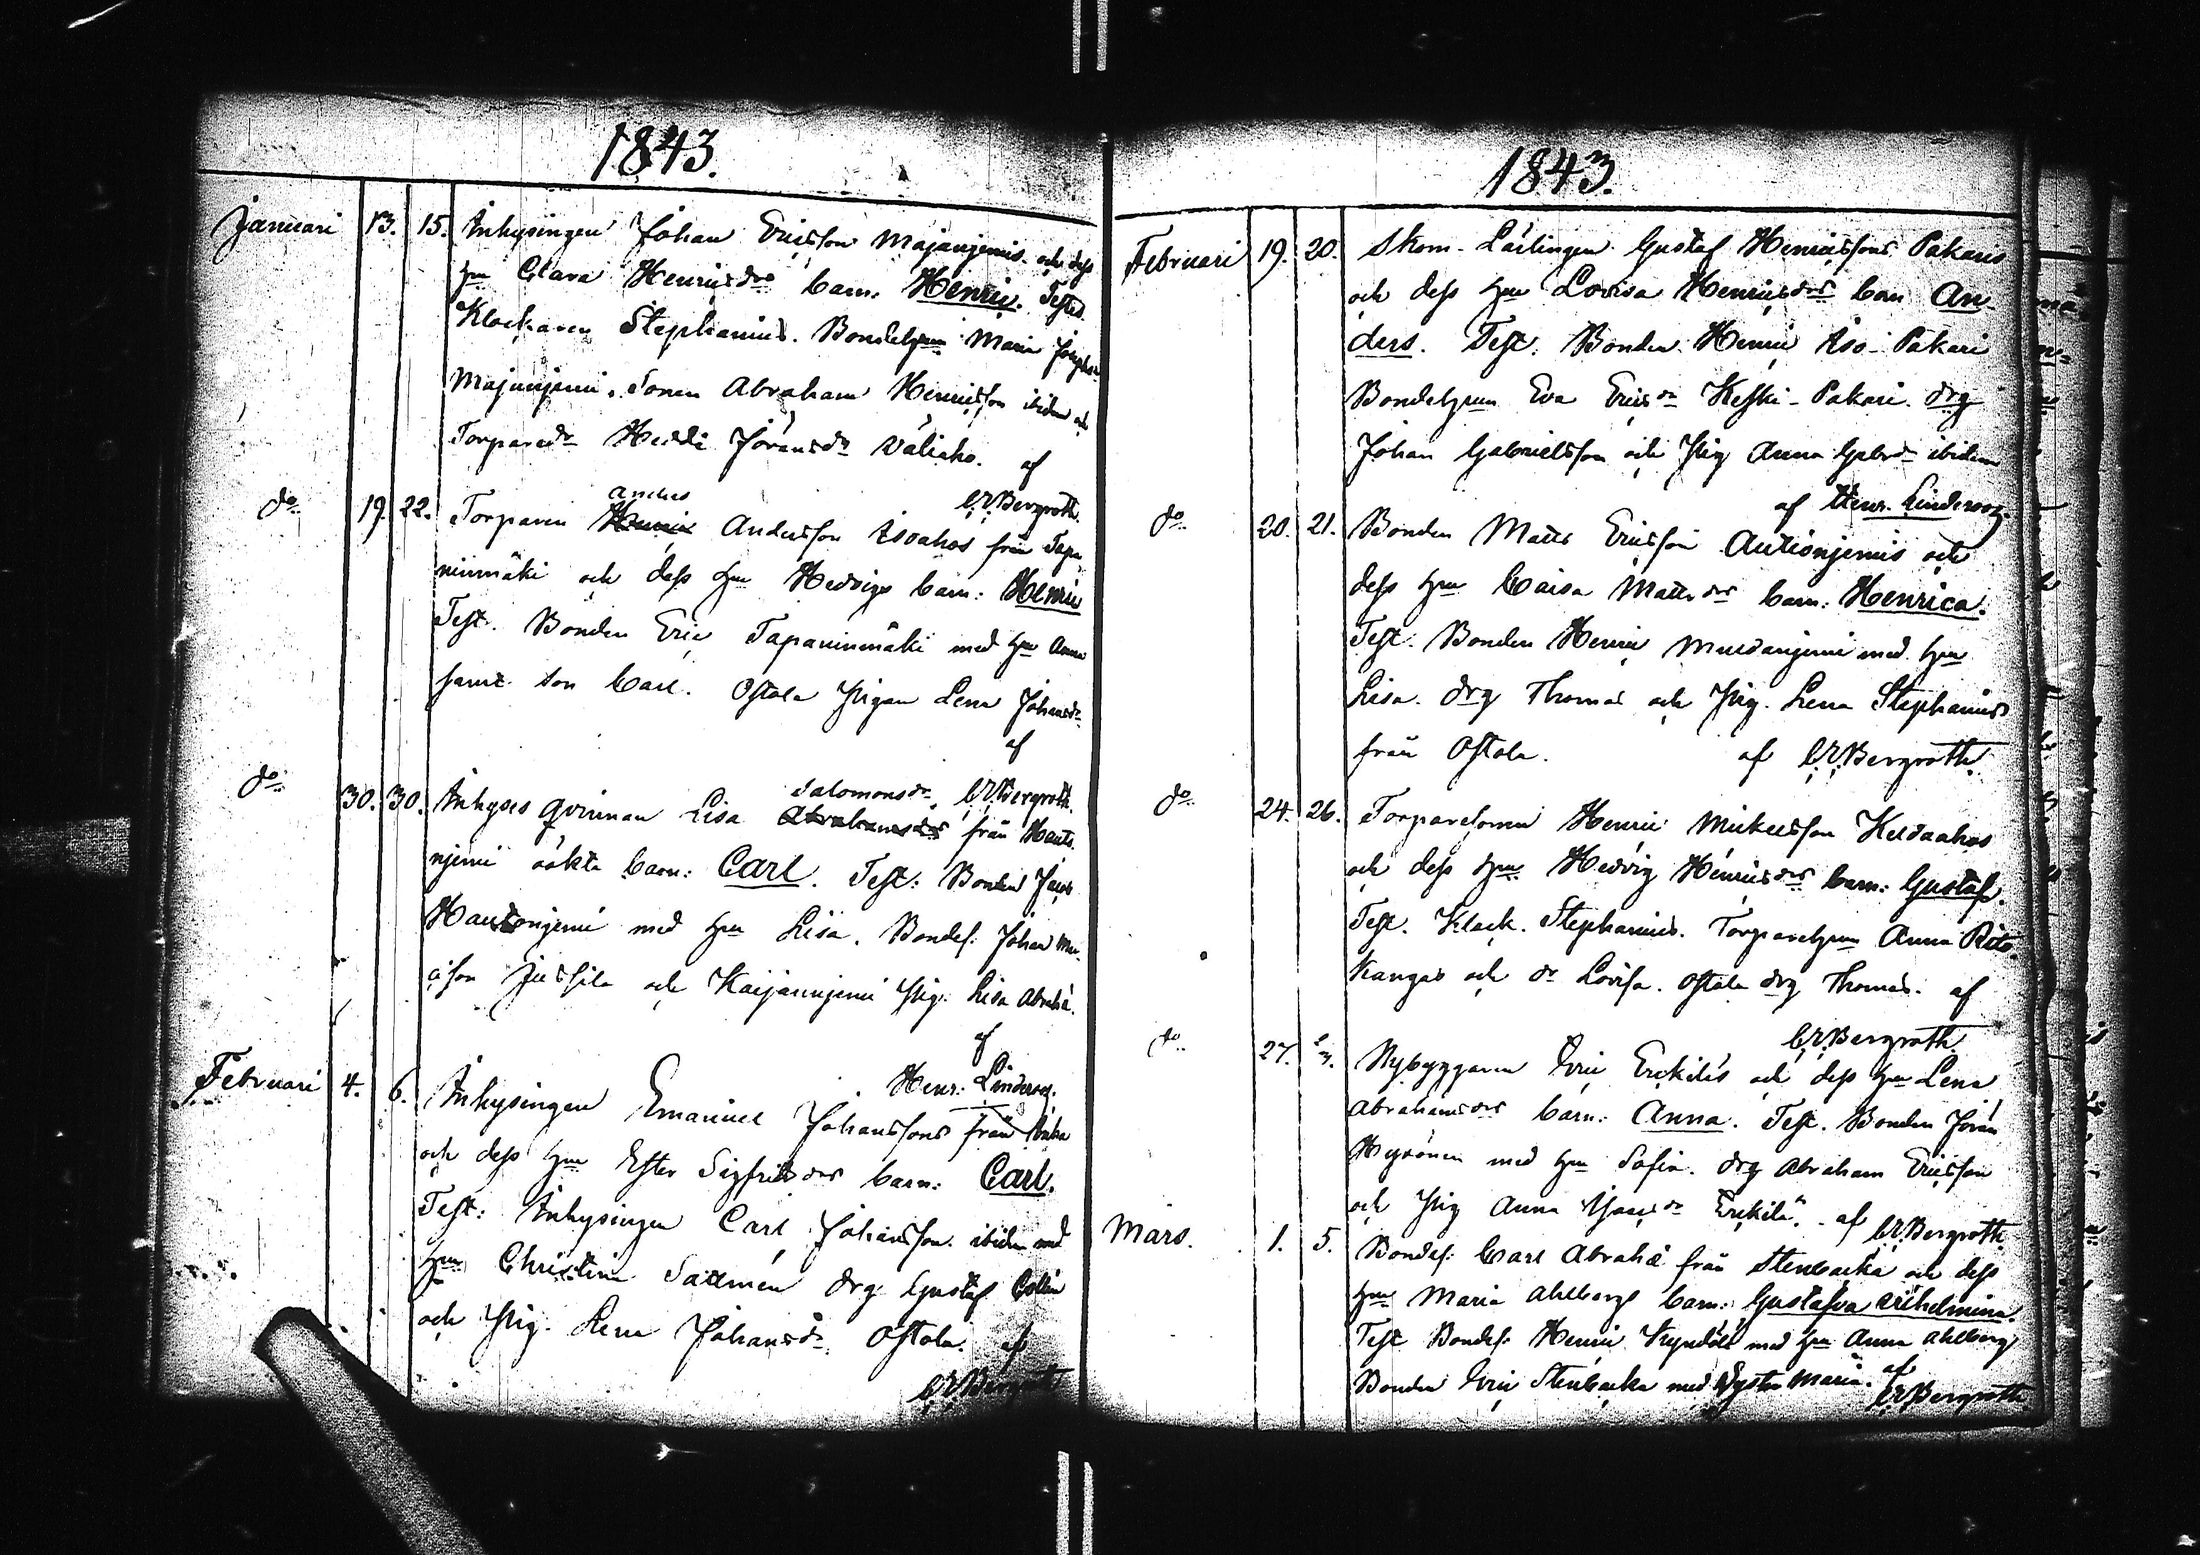 1843.
Januari 13. 15. Inhysingen Johan Ericsson Majanjemis och dess
hu Clara Henricsdrs barn: Henric. Test.
Klockaren Stephanius. Bondehun Maria
Majanjemi. Sonen Abraham Henricsson ibidem och
Torparedr Heddi Jöransdr Väliaho. af
C.R. Bergroth.
do 19. 22. Torparen Anders Andersson Isoahos från Tapa
ninmäki och dess hu Hedvigs barn: Henric
Test. Bonden Eric Tapaninmäki med hu Anna
samt son Carl. Ostola Pigan Lena Johansdr
af
C.R. Bergroth.
do 30. 30. Inhyses qvinnan Lisa Salomonsdr från Hauto
njemi oäkta barn: Carl. Test: Bonden Jacob
Hautonjemi med hu Lisa. Bondes. Johan
son Jussila och Kaijannjemi Pig. Lisa Abrah.
af
Henr: Linderoos.
Februari 4. 6. Inhysingen Emanuel Johanssons från
och dess hu Ester Sigfridsdrs barn: Carl.
Test: Inhysingen Carl Johansson ibidem med
hu Christina Salmén drg Gustaf
och Pig. Lena Johansdr. Ostola. af
C.R. Bergroth
1843.
Februari 19. 20. Skom. Lärlingen Gustaf Henricssons Pakaris
och dess hu Lovisa Henricsdrs barn An-
ders. Test: Bonden Henric Iso-Pakari
Bondehun Eva Ericsdr Keski-Pakari. drg
Johan Gabrielsson och Pig Anna Gabrdr ibidem
af Henr. Linderoos.
do 20. 21. Bonden Matts Ericsson Autionjemis och
dess hu Caisa Mattsdrs barn: Henrica.
Test: Bonden Henric med hu
Lisa. drg Thomas och Pig. Lena Stephanius
från Ostola. af C.R. Bergroth.
do 24. 26. Torparesonen Henric Mickelsson Keldaahos
och dess hu Hedvig Henricsdrs barn: Gustaf.
Test. Klock. Stephanius. Torparehun Anna Rito
kangas och dr Lovisa. Ostola drg Thomas. af
C.R. Bergroth.
do 27. Nybyggaren Eric Erkiläs och dess hu Lena
Abrahamsdrs barn: Anna. Test. Bonden Jöran
Hyrönen med hu Sofia. drg Abraham Ericsson
och Pig Anna Erkilä. af C.R. Bergroth.
Mars. 1. 5. Bondes: Carl Abrah. från Stenbacka och dess
hu Maria Ahlbergs barn: Gustafva Wilhelmina.
Test Bondes: Henric med hu Anna Ahlberg
Bonden Eric Stenbacka med Syster Maria. af
C.R. Bergroth